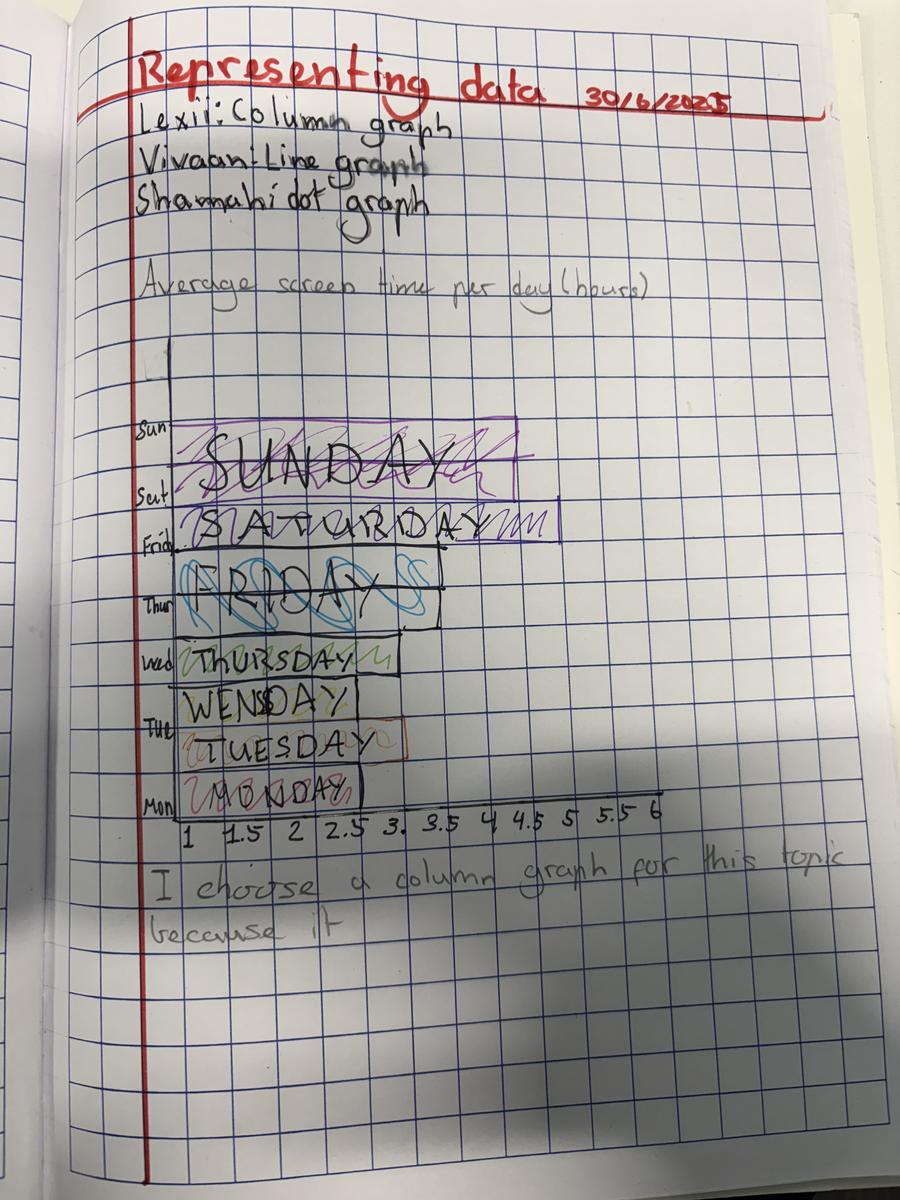 Representing data 30/6/2025
Lexii: Column graph
Vivaan: Line graph
Shamahi dot graph
Average screen time per day (hours)
Sun
SUNDAY
Sat
SATURDAY
Frid
FRIDAY
Thur
Wed THURSDAY
WENSDAY
Tue
TUESDAY
Mon MONDAY
1 1.5 2 2.5 3. 3.5 4 4.5 5 5.5 6
I choose a column graph for this topic
because it